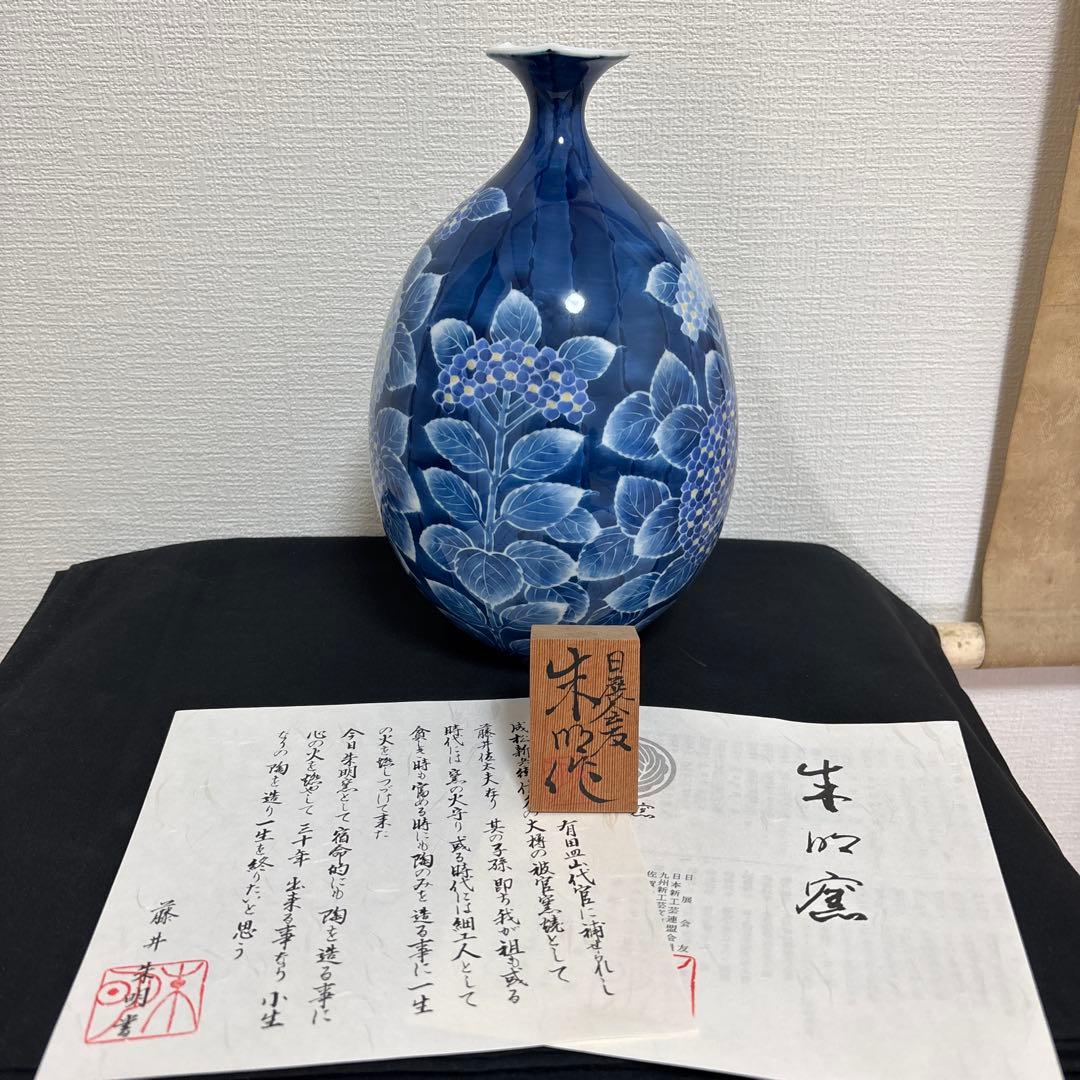 日展会友
朱明作
朱明窯
窯
日展会友
日本新工芸連盟会員
九州新工芸
佐賀
有田皿山代官に補せられし
成松新兵衛
の大樽の被官窯焼として
藤井佐太夫なり 其の子孫即ち我が祖も或る
時代には窯の火守り或る時代には細工人として
貧き時も富める時にも陶のみを造る事に一生
の火を燃しつづけて来た
今日朱明窯として宿命的にも陶を造る事に
心の火を燃やして三十年 出来る事なら小生
なりの陶を造り一生を終りたいと思う
藤井朱明書
朱明